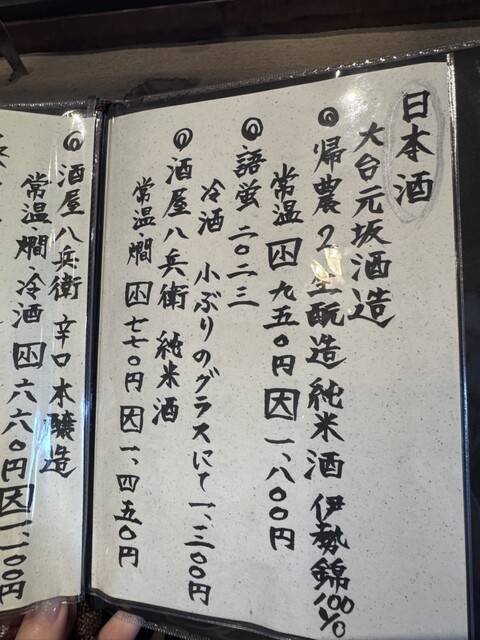 日本酒
大台元坂酒造
◎帰農2 生酛造 純米酒 伊勢錦100%
常温 小 九五〇円 大 一、八〇〇円
◎語蛍 二〇二三
冷酒 小ぶりのグラスにて 一、三〇〇円
◎酒屋八兵衛 純米酒
常温 燗 小 七七〇円 大 一、四五〇円
◎酒屋八兵衛 辛口本醸造
常温、燗、冷酒 小 六六〇円 大 一、一〇〇円